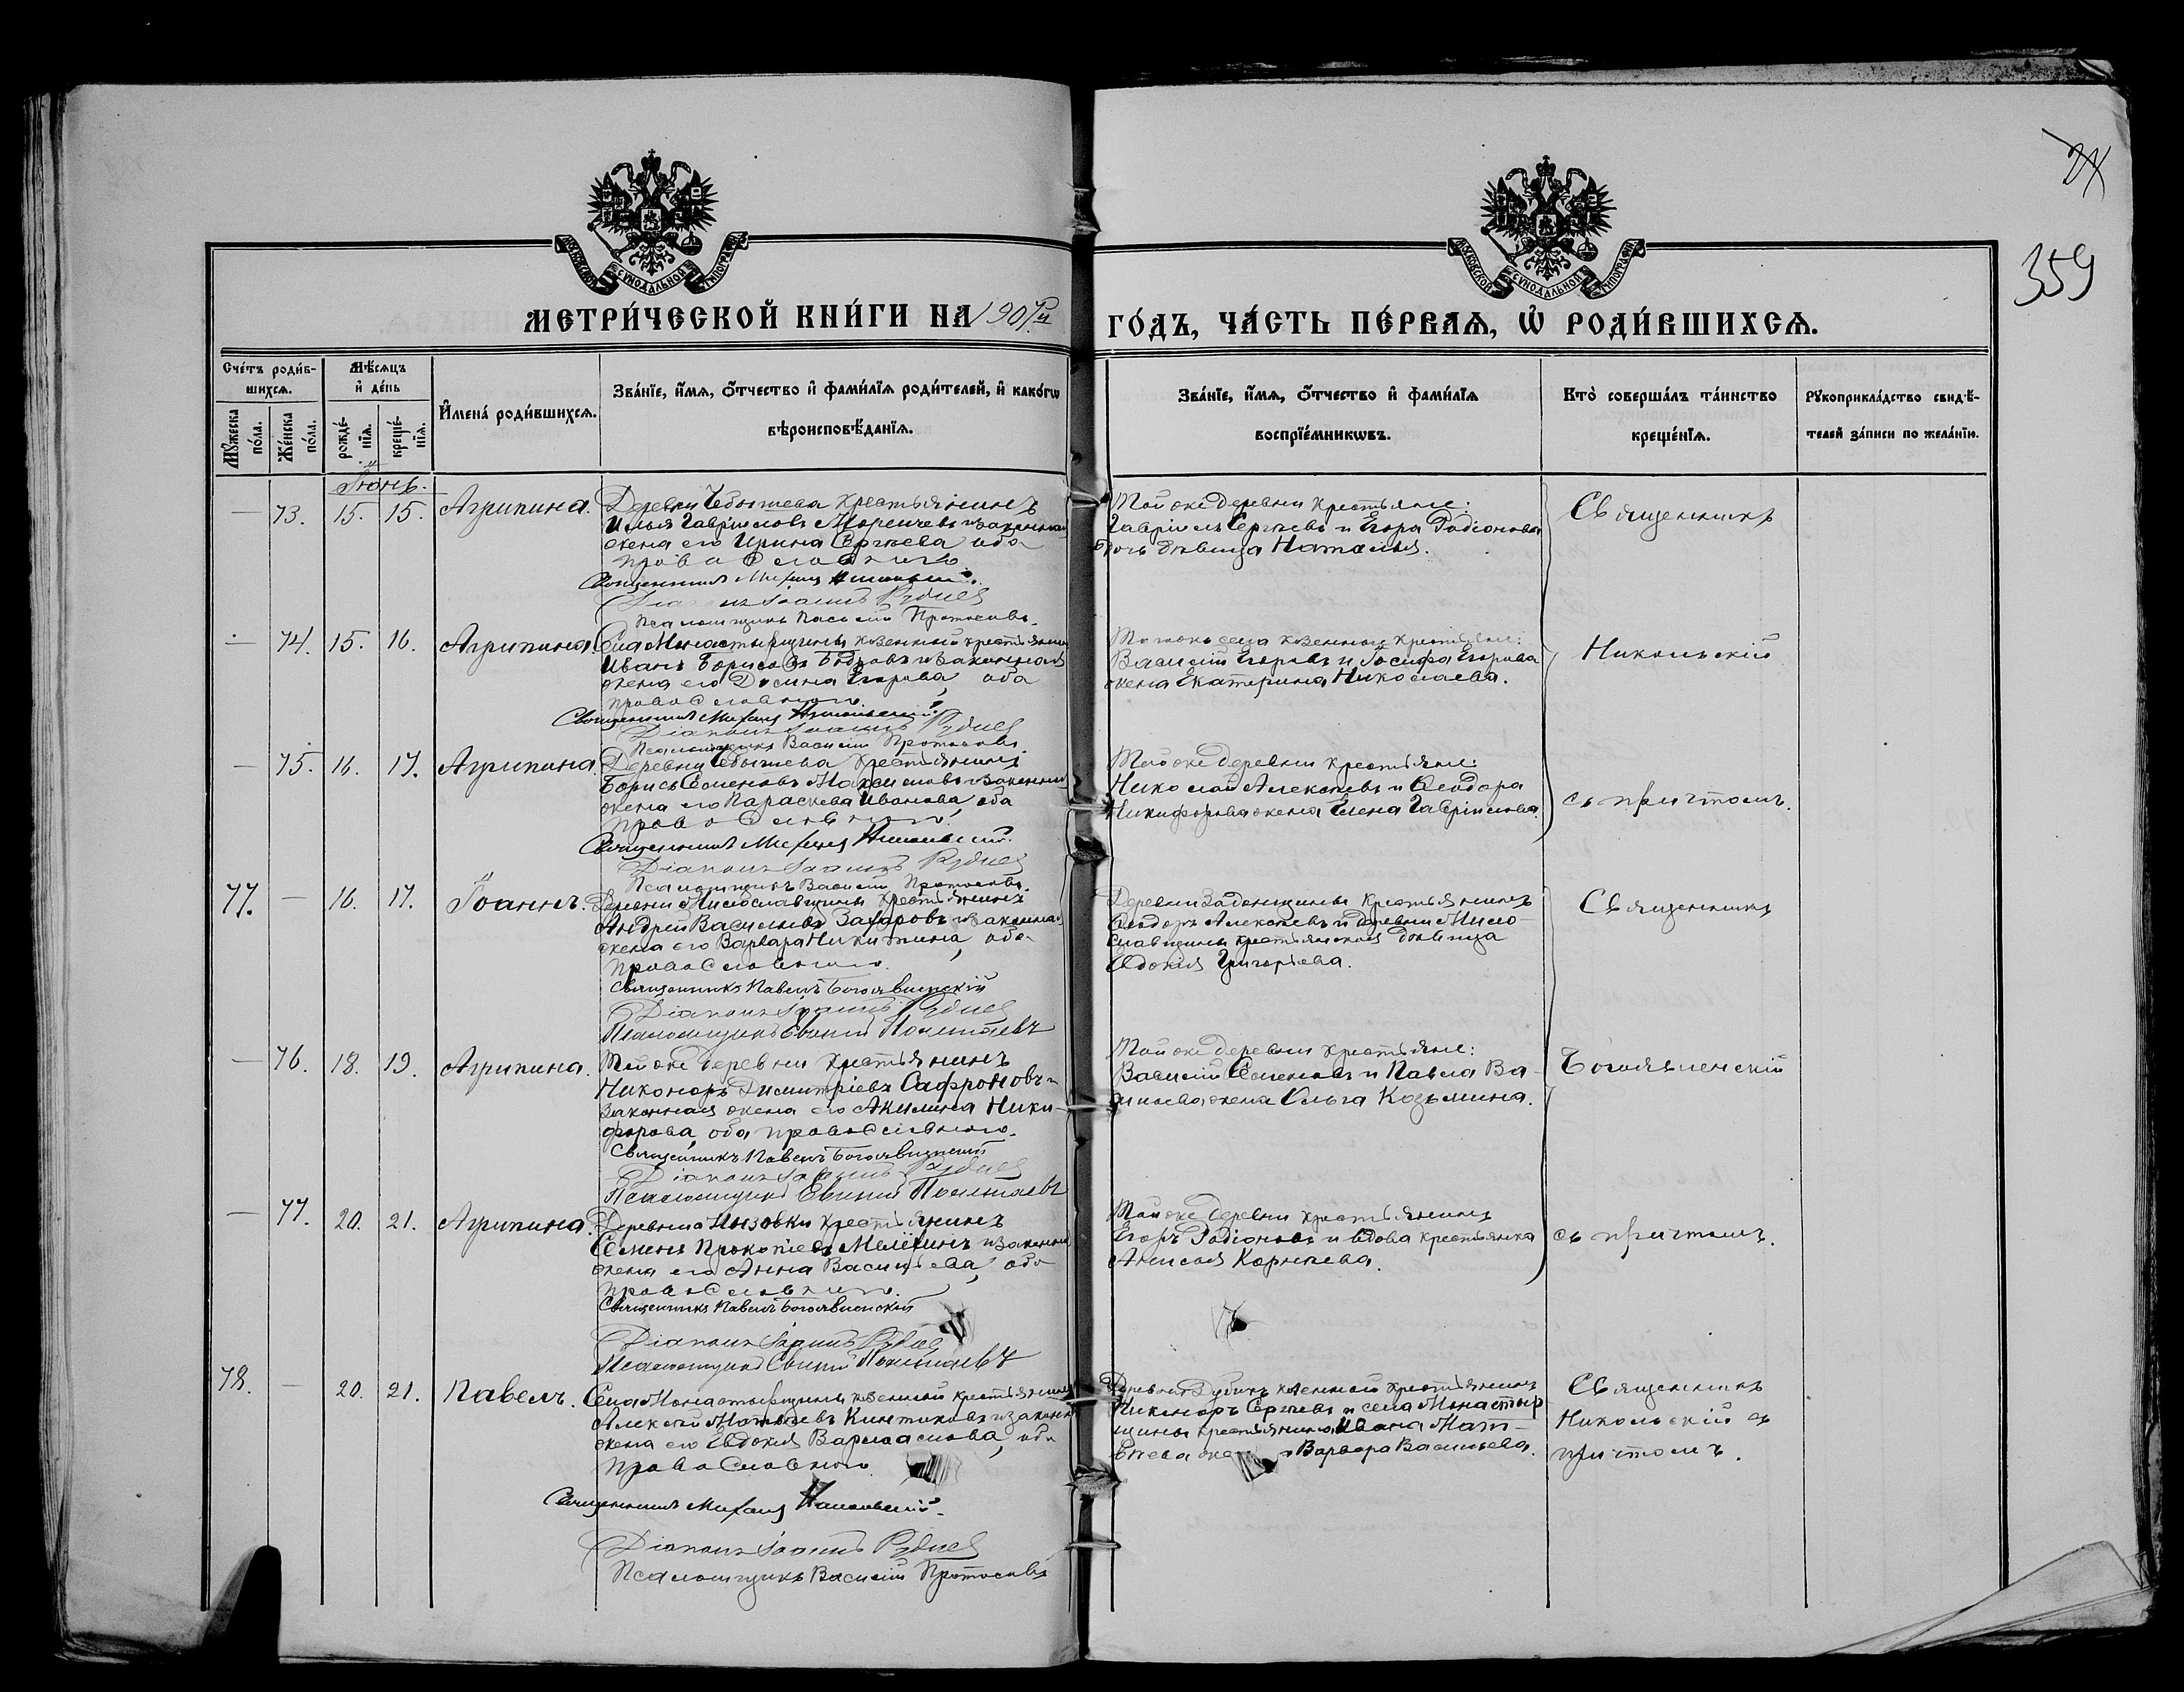 24
359
МОСКОВСКОЙ СУНОДАЛЬНОЙ ТИПОГРАФІИ
МОСКОВСКОЙ СУНОДАЛЬНОЙ ТИПОГРАФІИ
МЕТРИ́ЧЕСКОЙ КНИ́ГИ НА 190
ГО́ДЪ, ЧА́СТЬ ПЕ́РВАѦ, Ѡ РОДИ́ВШИХСѦ.
Сче́тъ роди́в-
шихсѧ.
Мѣ́сѧцъ
и҆ де́нь
И҆мена̀ роди́вшихсѧ.
Зва́нїе, и҆́мѧ, ѻ҆́тчество и҆ фами́лїѧ роди́телей, и҆ како́гѡ
вѣроисповѣ́данїѧ.
Мꙋ́жеска
по́ла.
Же́нска
по́ла.
рожде́-
нїѧ.
креще́-
нїѧ.
Зва́нїе, и҆́мѧ, ѻ҆́тчество и҆ фами́лїѧ
воспрїе́мникѡвъ.
Кто̀ соверша́лъ та́инство
креще́нїѧ.
Рꙋкоприкла́дство свидѣ́-
телей за́писи по жела́нїю.
Іюнь.
— 73. 15. 15. Агрипина. Деревни крестьянинъ
Илья Гавріиловъ и законная
жена его Ирина Сергѣева оба
православнаго
Священникъ Михаилъ Никольскій.
Діаконъ Іоаннъ Рудневъ
Псаломщикъ Василій Протасовъ.
Той же деревни крестьяне:
Гавріилъ Сергѣевъ и Егора Родіонова
дочь дѣвица Наталія.
Священникъ
— 74. 15. 16. Агрипина Села Монастырщины казенный крестьянинъ
Иванъ Борисовъ Бобровъ и законная
жена его Егорова, оба
православнаго.
Священникъ Михаилъ Никольскій.
Діаконъ Іоаннъ Рудневъ
Псаломщикъ Василій Протасовъ.
Того же села казенные крестьяне:
Василій Егоровъ и Іосифа Егорова
жена Екатерина Николаева.
Никольскій
— 75. 16. 17. Агрипина. Деревни крестьянинъ
Борисъ Семеновъ Максимовъ и законная
жена его Параскева Иванова, оба
православнаго.
Священникъ Михаилъ Никольскій.
Діаконъ Іоаннъ Рудневъ
Псаломщикъ Василій Протасовъ.
Той же деревни крестьяне:
Николай Алексѣевъ и Ѳеодора
Никифорова жена Елена Гавріилова.
съ причтомъ.
77. — 16. 17. Іоаннъ. Деревни Милославщины крестьянинъ
Андрей Васильевъ Захаровъ и законная
жена его Варвара Никитина, оба
православнаго.
Священникъ Павелъ Богоявленскій
Діаконъ Іоаннъ Рудневъ
Псаломщикъ Евгеній
Деревни Задонщины крестьянинъ
Ѳеодоръ Алексѣевъ и деревни Мило-
славщины крестьянская дѣвица
Евдокія Григорьева.
Священникъ
— 76. 18. 19. Агрипина. Той же деревни крестьянинъ
Никоноръ Димитріевъ Сафроновъ и
законная жена его Акилина Ники-
форова, оба православнаго.
Священникъ Павелъ Богоявленскій
Діаконъ Іоаннъ Рудневъ
Псаломщикъ Евгеній
Той же деревни крестьяне:
Василій Семеновъ и Павла Ва-
сильева жена Ольга Козьмина.
Богоявленскій
— 77. 20. 21. Агрипина. Деревни Низовки крестьянинъ
Семенъ Прокопіевъ и законная
жена его Анна Васильева, оба
православнаго.
Священникъ Павелъ Богоявленскій
Діаконъ Іоаннъ Рудневъ
Псаломщикъ Евгеній
Той же деревни крестьянинъ
Егоръ Родіоновъ и вдова крестьянка
Анисія Корнѣева.
съ причтомъ.
78. — 20. 21. Павелъ. Села Монастырщины казенный крестьянинъ
Алексѣй Матвѣевъ и законн
жена его Евдокія Варлаамова, оба
православнаго
Священникъ Михаилъ Никольскій.
Діаконъ Іоаннъ Рудневъ
Псаломщикъ Василій Протасовъ
Деревни казенный крестьянинъ
Никаноръ Сергѣевъ и села Монастыр
щины крестьянина Ивана Мат-
вѣева жена Варвара Васильева.
Священникъ
Никольскій съ
причтомъ.